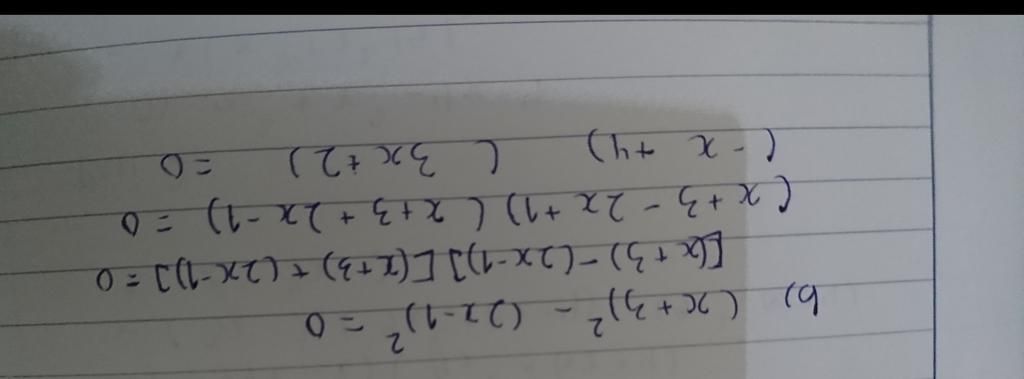 b) (x+3)² - (2x-1)² = 0
[(x+3) - (2x-1)] [(x+3) + (2x-1)] = 0
(x+3 - 2x +1) (x+3 + 2x -1) = 0
(-x +4) (3x+2) = 0